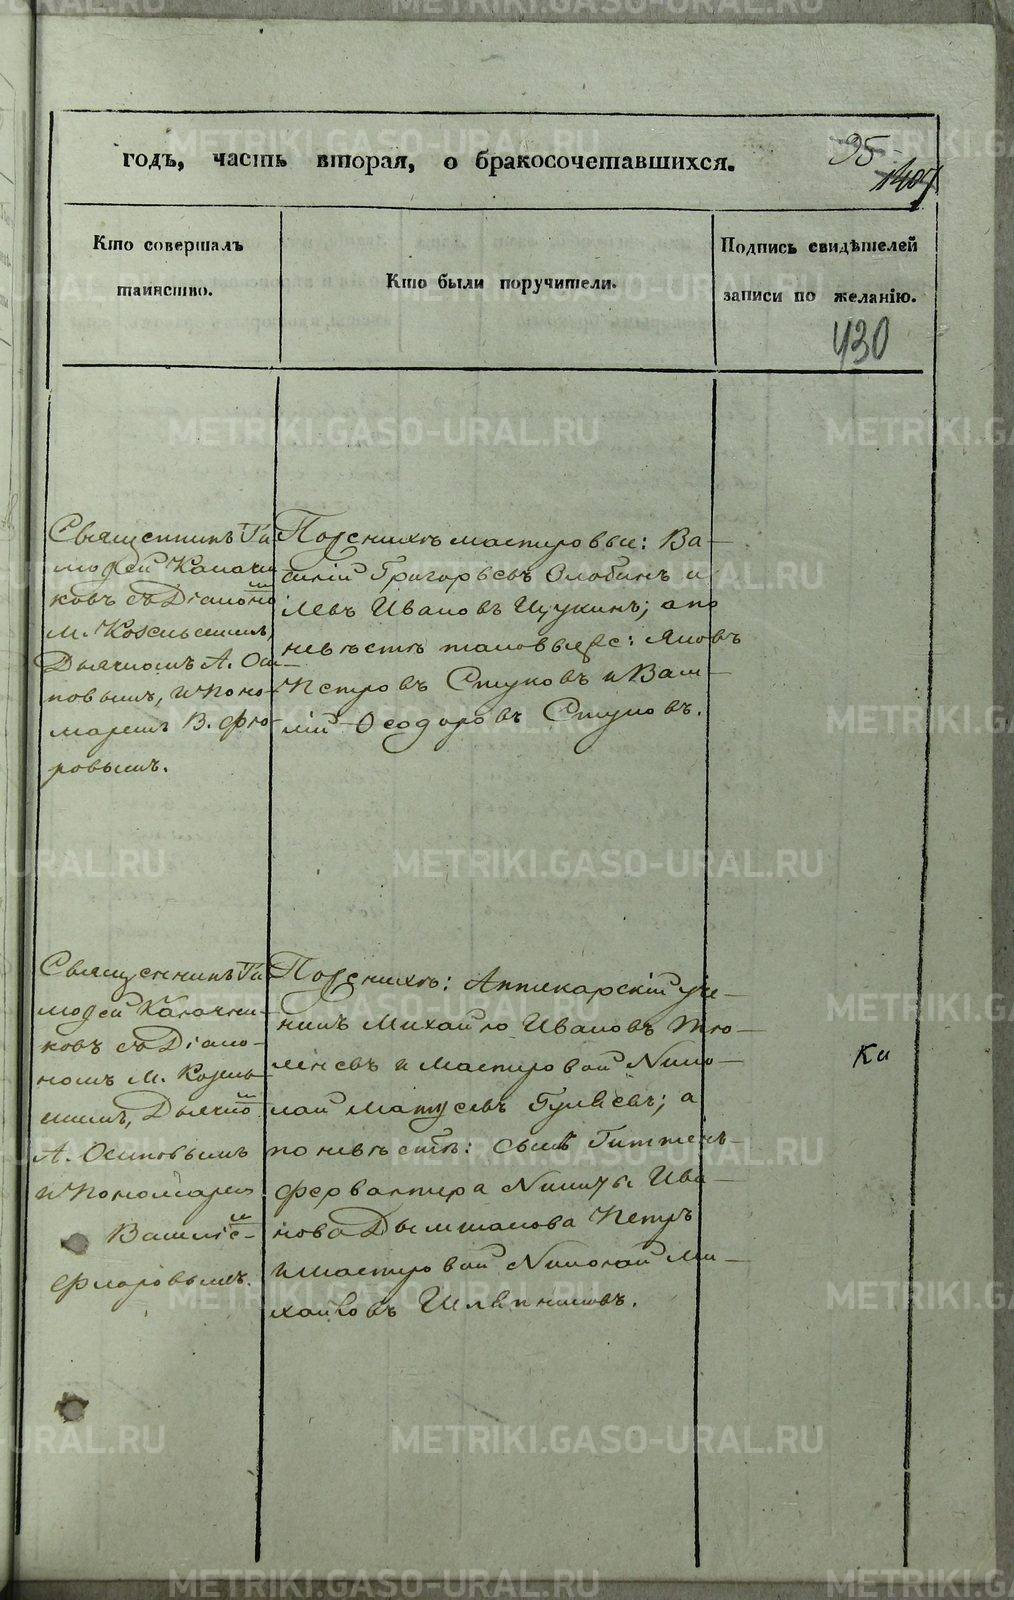 годъ, часть вторая, о бракосочетавшихся.
95
1407
Кто совершалъ
таинство.
Кто были поручители.
Подпись свидѣтелей
записи по желанію.
430
Священникъ Ти
моѳей Калачни
ковъ съ Діаконо
м. М. Козельскимъ,
Дьячкомъ А. Оси
повымъ, и поно-
маремъ В. Фло-
ровымъ.
По женихѣ мастеровые: Ва-
силій Григорьевъ Злобинъ и
Левъ Ивановъ Щукинъ; а по
невѣстѣ таковые же: Яковъ
Петровъ Стуковъ и Васи-
лій Ѳеодоровъ Стуковъ.
Священникъ Ти
моѳей Калачни-
ковъ съ Діако-
номъ М. Козель-
скимъ, Дьячко
А. Осиповымъ
и пономаремъ
Василіе-
Флоровымъ.
По женихѣ: Аптекарскій уче-
никъ Михайло Ивановъ Тю-
леневъ и мастеровой Нико-
лай Матвѣевъ Гуляевъ; а
по невѣстѣ: сынъ Гиттен-
фервалтера Никиты Ива-
нова Дьмшакова Петръ
и мастеровой Николай Ми-
хайловъ Шляпниковъ.
Ка
METRIKI.GASO-URAL.RU